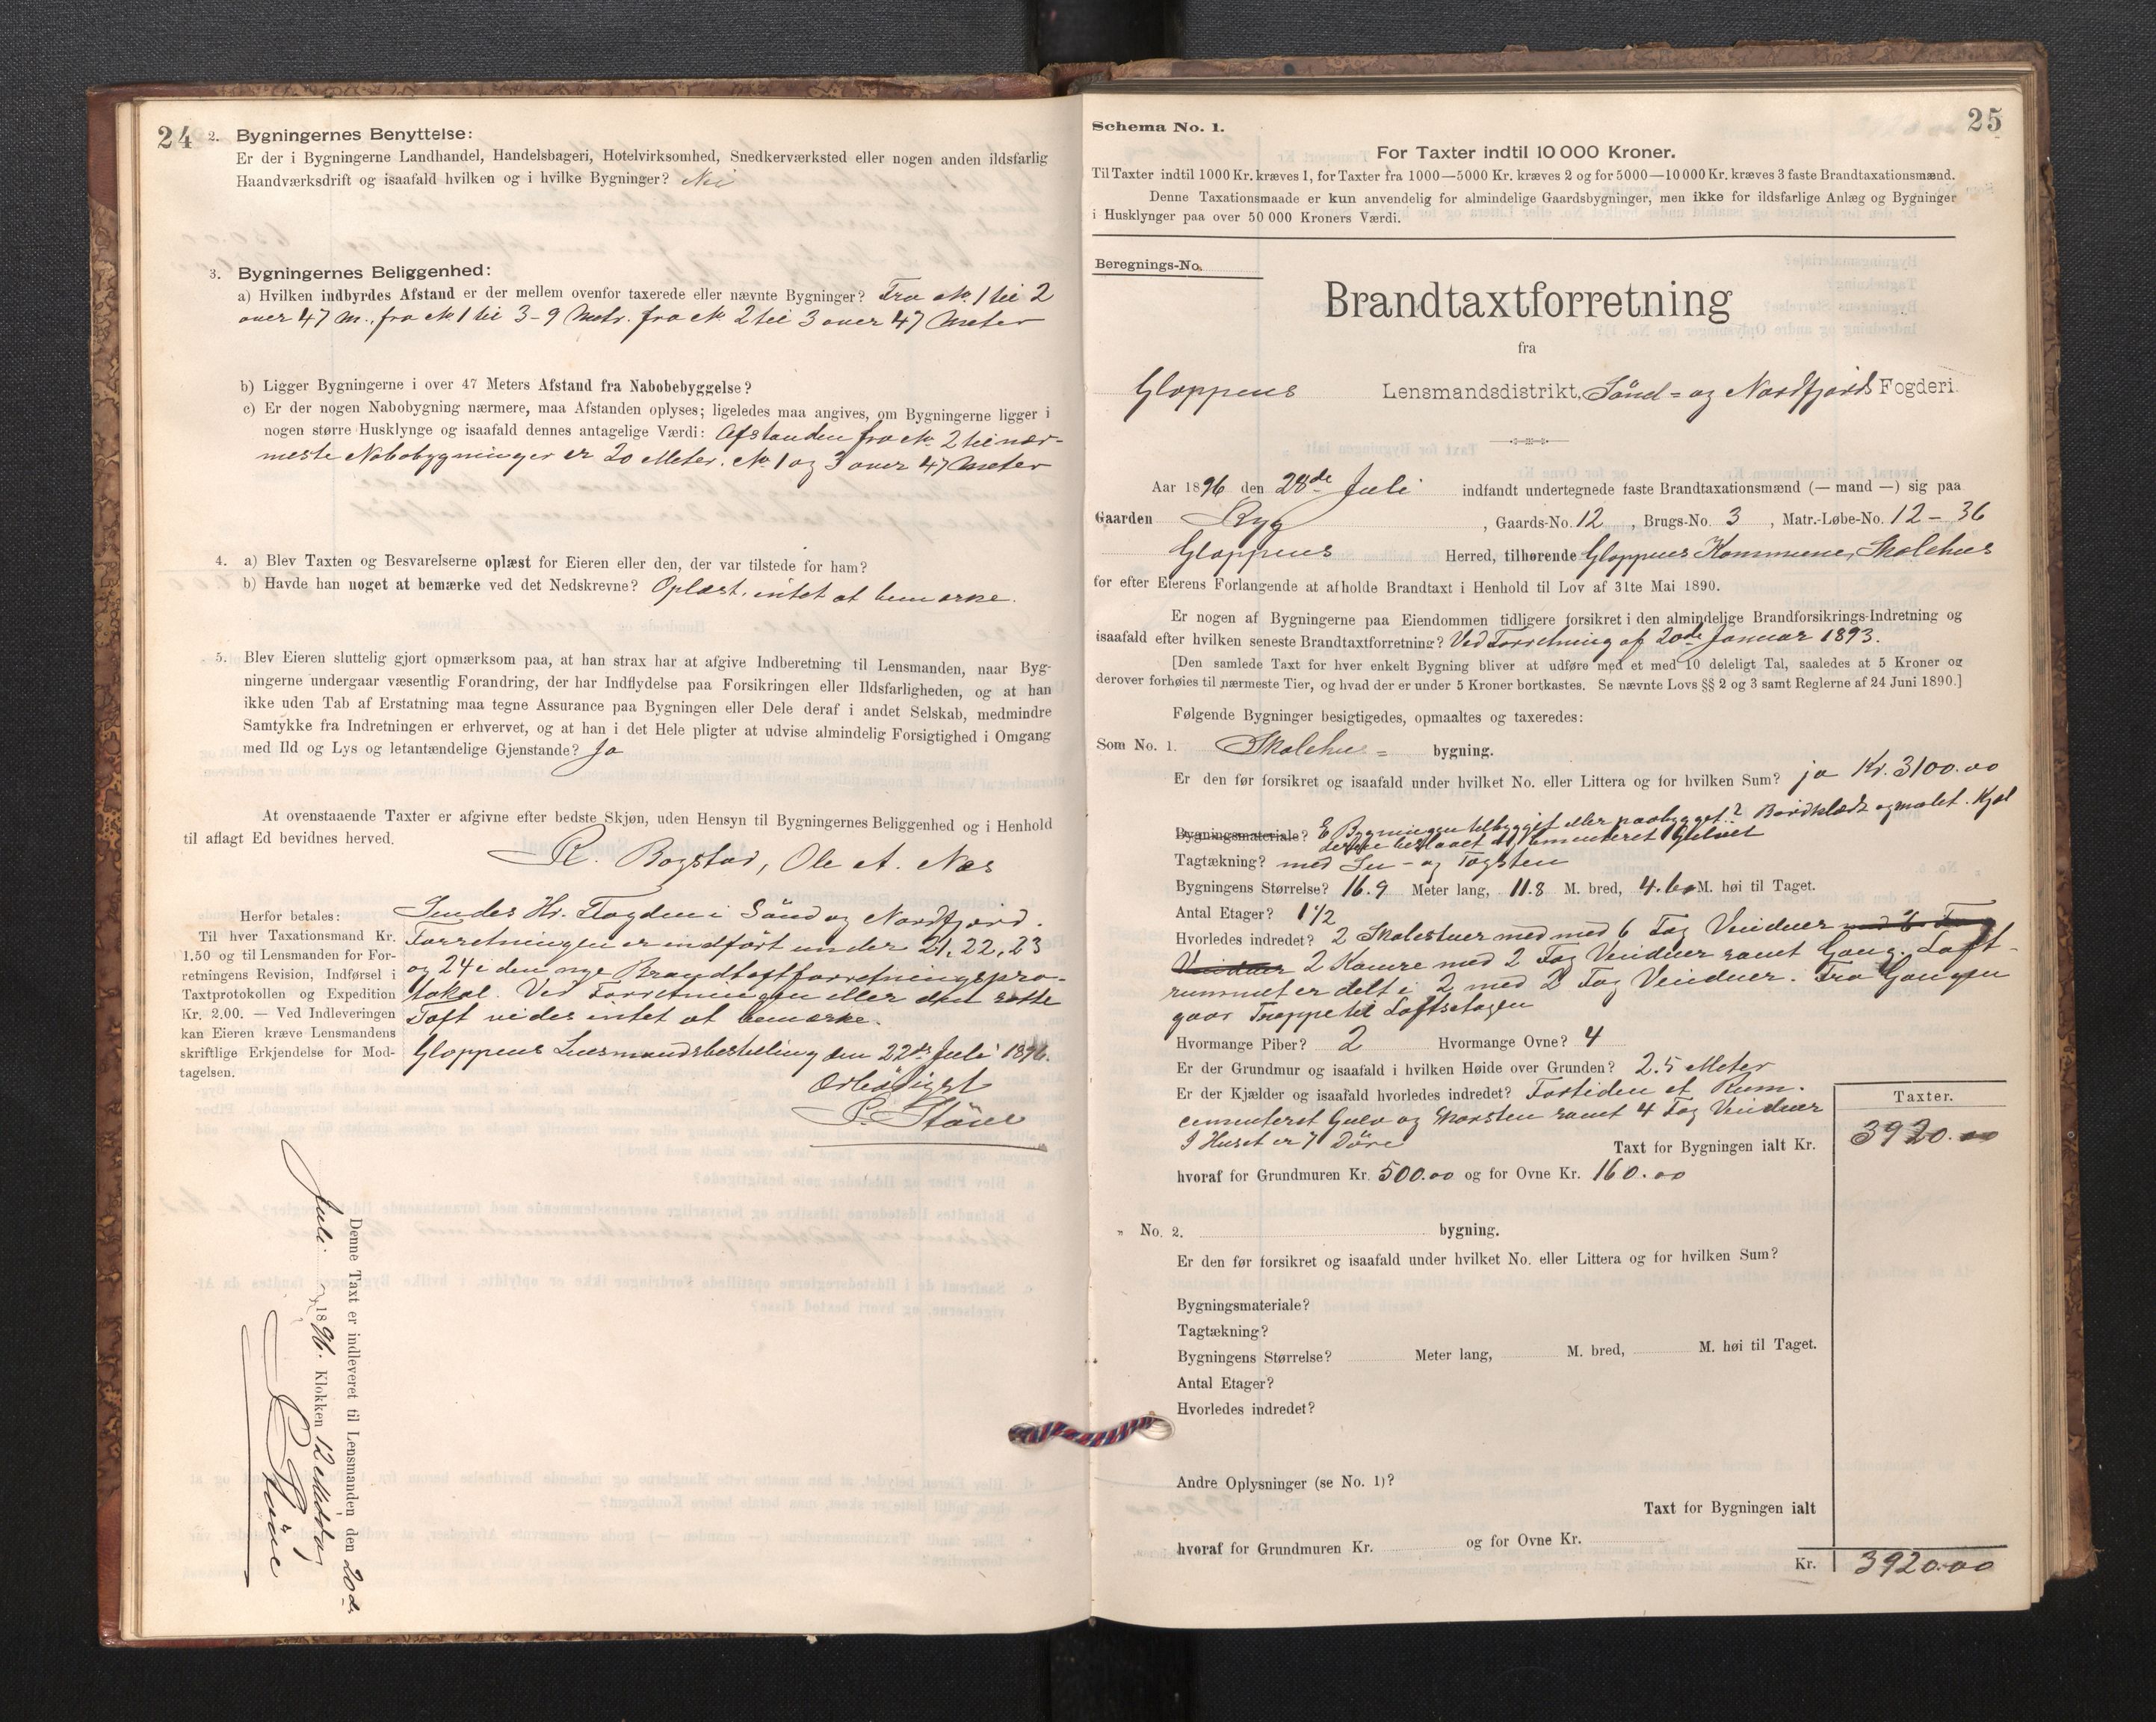 24
2. Bygningernes Benyttelse:
Er der i Bygningerne Landhandel, Handelsbageri, Hotelvirksomhed, Snedkerværksted eller nogen anden ildsfarlig
Haandværksdrift og isaafald hvilken og i hvilke Bygninger? Nei
3. Bygningernes Beliggenhed:
a) Hvilken indbyrdes Afstand er der mellem ovenfor taxerede eller nævnte Bygninger? Fra No. 1 til 2
over 47 M., fra No. 1 til 3 - 9 Metr. fra No. 2 til 3 over 47 Meter
b) Ligger Bygningerne i over 47 Meters Afstand fra Nabobebyggelse?
c) Er der nogen Nabobygning nærmere, maa Afstanden oplyses; ligeledes maa angives, om Bygningerne ligger i
nogen større Husklynge og isaafald dennes antagelige Værdi: Afstanden fra No. 2 til nær-
meste Nabobygninger er 20 Meter. No. 1 og 3 over 47 Meter
4. a) Blev Taxten og Besvarelserne oplæst for Eieren eller den, der var tilstede for ham?
b) Havde han noget at bemærke ved det Nedskrevne? Oplæst, intet at bemærke.
5. Blev Eieren sluttelig gjort opmærksom paa, at han strax har at afgive Indberetning til Lensmanden, naar Byg-
ningerne undergaar væsentlig Forandring, der har Indflydelse paa Forsikringen eller Ildsfarligheden, og at han
ikke uden Tab af Erstatning maa tegne Assurance paa Bygningen eller Dele deraf i andet Selskab, medmindre
Samtykke fra Indretningen er erhvervet, og at han i det Hele pligter at udvise almindelig Forsigtighed i Omgang
med Ild og Lys og letantændelige Gjenstande? Ja
At ovenstaaende Taxter er afgivne efter bedste Skjøn, uden Hensyn til Bygningernes Beliggenhed og i Henhold
til aflagt Ed bevidnes herved.
R. Bogstad, Ole A. Næs
Herfor betales:
Til hver Taxationsmand Kr.
1.50 og til Lensmanden for For-
retningens Revision, Indførsel i
Taxtprotokollen og Expedition
Kr. 2.00. — Ved Indleveringen
kan Eieren kræve Lensmandens
skriftlige Erkjendelse for Mod-
tagelsen.
Sendes Hr. Fogden i Sönd og Nordfjord.
Forretningen er indført under 21, 22, 23
og 24 i den nye Brandtaxtforretningspro-
tokol. Ved Forretningen eller den satte
Taxt vides intet at bemærke.
Gloppens Lensmandsbestilling den 22de Juli 1896.
Ærbödigst
Denne Taxt er indleveret til Lensmanden den 20de
Juli 1896. Klokken 12 Middag
25
Schema No. 1.
For Taxter indtil 10 000 Kroner.
Til Taxter indtil 1000 Kr. kræves 1, for Taxter fra 1000—5000 Kr. kræves 2 og for 5000—10000 Kr. kræves 3 faste Brandtaxationsmænd.
Denne Taxationsmaade er kun anvendelig for almindelige Gaardsbygninger, men ikke for ildsfarlige Anlæg og Bygninger
i Husklynger paa over 50 000 Kroners Værdi.
Beregnings-No.
Brandtaxtforretning
fra
Gloppens Lensmandsdistrikt, Sönd- og Nordfjords Fogderi.
Aar 1896 den 28de Juli indfandt undertegnede faste Brandtaxationsmænd (— mand —) sig paa
Gaarden Ryg, Gaards-No. 12, Brugs-No. 3, Matr.-Løbe-No. 12 - 36
Gloppens Herred, tilhørende Gloppens Kommune, Skolehus
for efter Eierens Forlangende at afholde Brandtaxt i Henhold til Lov af 31te Mai 1890.
Er nogen af Bygningerne paa Eiendommen tidligere forsikret i den almindelige Brandforsikrings-Indretning og
isaafald efter hvilken seneste Brandtaxtforretning? Ved Forretning af 20de Januar 1893.
[Den samlede Taxt for hver enkelt Bygning bliver at udføre med et med 10 deleligt Tal, saaledes at 5 Kroner og
derover forhøies til nærmeste Tier, og hvad der er under 5 Kroner bortkastes. Se nævnte Lovs §§ 2 og 3 samt Reglerne af 24 Juni 1890.]
Følgende Bygninger besigtigedes, opmaaltes og taxeredes:
Som No. 1. Skolehus= bygning.
Er den før forsikret og isaafald under hvilket No. eller Littera og for hvilken Sum? ja Kr. 3100.00
Bygningsmateriale? Er Bygningen tilbygget eller paabygget? Bordklædt og malet. Kjæl
deren cementeret Gulvet
Tagtækning? med Su- og Tagsten
Bygningens Størrelse? 16.9 Meter lang, 11.8 M. bred, 4.60 M. høi til Taget.
Antal Etager? 1 1/2
Hvorledes indredet? 2 Skolestuer med med 6 Fag Vinduer med 6 Fag
Vinduer 2 Kamre med 2 Fag Vinduer samt Gang. Loft-
rummet er delt i 2 med 2 Fag Vinduer. Fra Gangen
gaar Trappe til Loftsetagen
Hvormange Piber? 2 Hvormange Ovne? 4
Er der Grundmur og isaafald i hvilken Høide over Grunden? 2.5 Meter
Er der Kjælder og isaafald hvorledes indredet? Fortiden et Rum.
cementeret Gulv og Skorsten samt 4 Fag Vinduer
I Huset er 7 Döre
Taxter.
Taxt for Bygningen ialt Kr. 3920.00
hvoraf for Grundmuren Kr. 500.00 og for Ovne Kr. 160.00
" No. 2. bygning.
Er den før forsikret og isaafald under hvilket No. eller Littera og for hvilken Sum?
Bygningsmateriale?
Tagtækning?
Bygningens Størrelse? Meter lang, M. bred, M. høi til Taget.
Antal Etager?
Hvorledes indredet?
Andre Oplysninger (se No. 1)?
Taxt for Bygningen ialt
hvoraf for Grundmuren Kr. og for Ovne Kr.
Kr. 3920.00